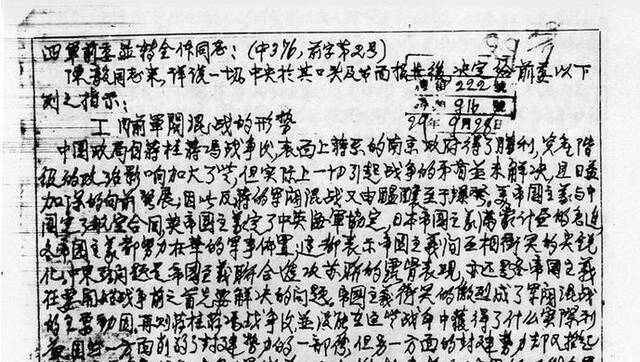 四軍前委並轉全体同志：(中376，前字第2号)
陳毅同志来，详说一切，中央於其口头及书面报告後，决定给前委以下
列之指示：
222號
916號
29年9月28日
工 目前軍閥混战的形势
中國政局自蒋桂蒋馮战争後，表面上蒋系的南京政府得了勝利，资产階
级的改良影响加大了些，但实际上一切引起战争的矛盾並未解决，且日益
加深的向前发展，因此反蒋的軍閥混战又由醖釀至于爆发，美帝國主義与中
國定了航空合同，英帝國主義定了中英海軍協定，日本帝國主義
各帝國主義都努力在華的軍事佈置，這都表示帝國主義间互相衝突的尖銳
化，中東路问题是帝國主義联合進攻苏联的露骨表现，亦还是各帝國主義
在要開始战争前之首先要解决的问题。帝國主義衝突的激烈成了軍閥混战
的主要動因，再则蒋桂蒋馮战争後並没有在這些战争中獲得了什么实际利
益，固然一方面削弱了封建势力的一部份，但另一方面的封建势力却又